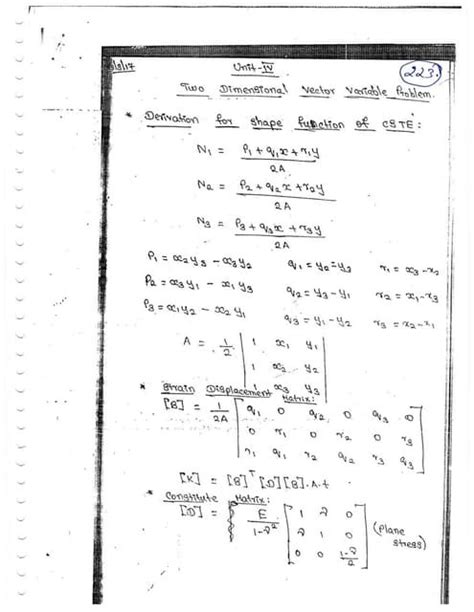 /8/17 Unit-IV 223.
Two Dimensional Vector Variable Problem.
* Derivation for shape function of CSTE:
N₁ = P₁ + q₁x + r₁y / 2A
N₂ = P₂ + q₂x + r₂y / 2A
N₃ = P₃ + q₃x + r₃y / 2A
P₁ = x₂y₃ - x₃y₂ q₁ = y₂ - y₃ r₁ = x₃ - x₂
P₂ = x₃y₁ - x₁y₃ q₂ = y₃ - y₁ r₂ = x₁ - x₃
P₃ = x₁y₂ - x₂y₁ q₃ = y₁ - y₂ r₃ = x₂ - x₁
A = 1/2 | 1 x₁ y₁
1 x₂ y₂
1 x₃ y₃ |
* Strain Displacement Matrix:
[B] = 1/2A [ q₁ 0 q₂ 0 q₃ 0
0 r₁ 0 r₂ 0 r₃
r₁ q₁ r₂ q₂ r₃ q₃ ]
[K] = [B]ᵀ [D] [B] . A . t
* Constitute Matrix:
[D] = E / 1-ν² [ 1 ν 0
ν 1 0
0 0 1-ν/2 ] (Plane stress)